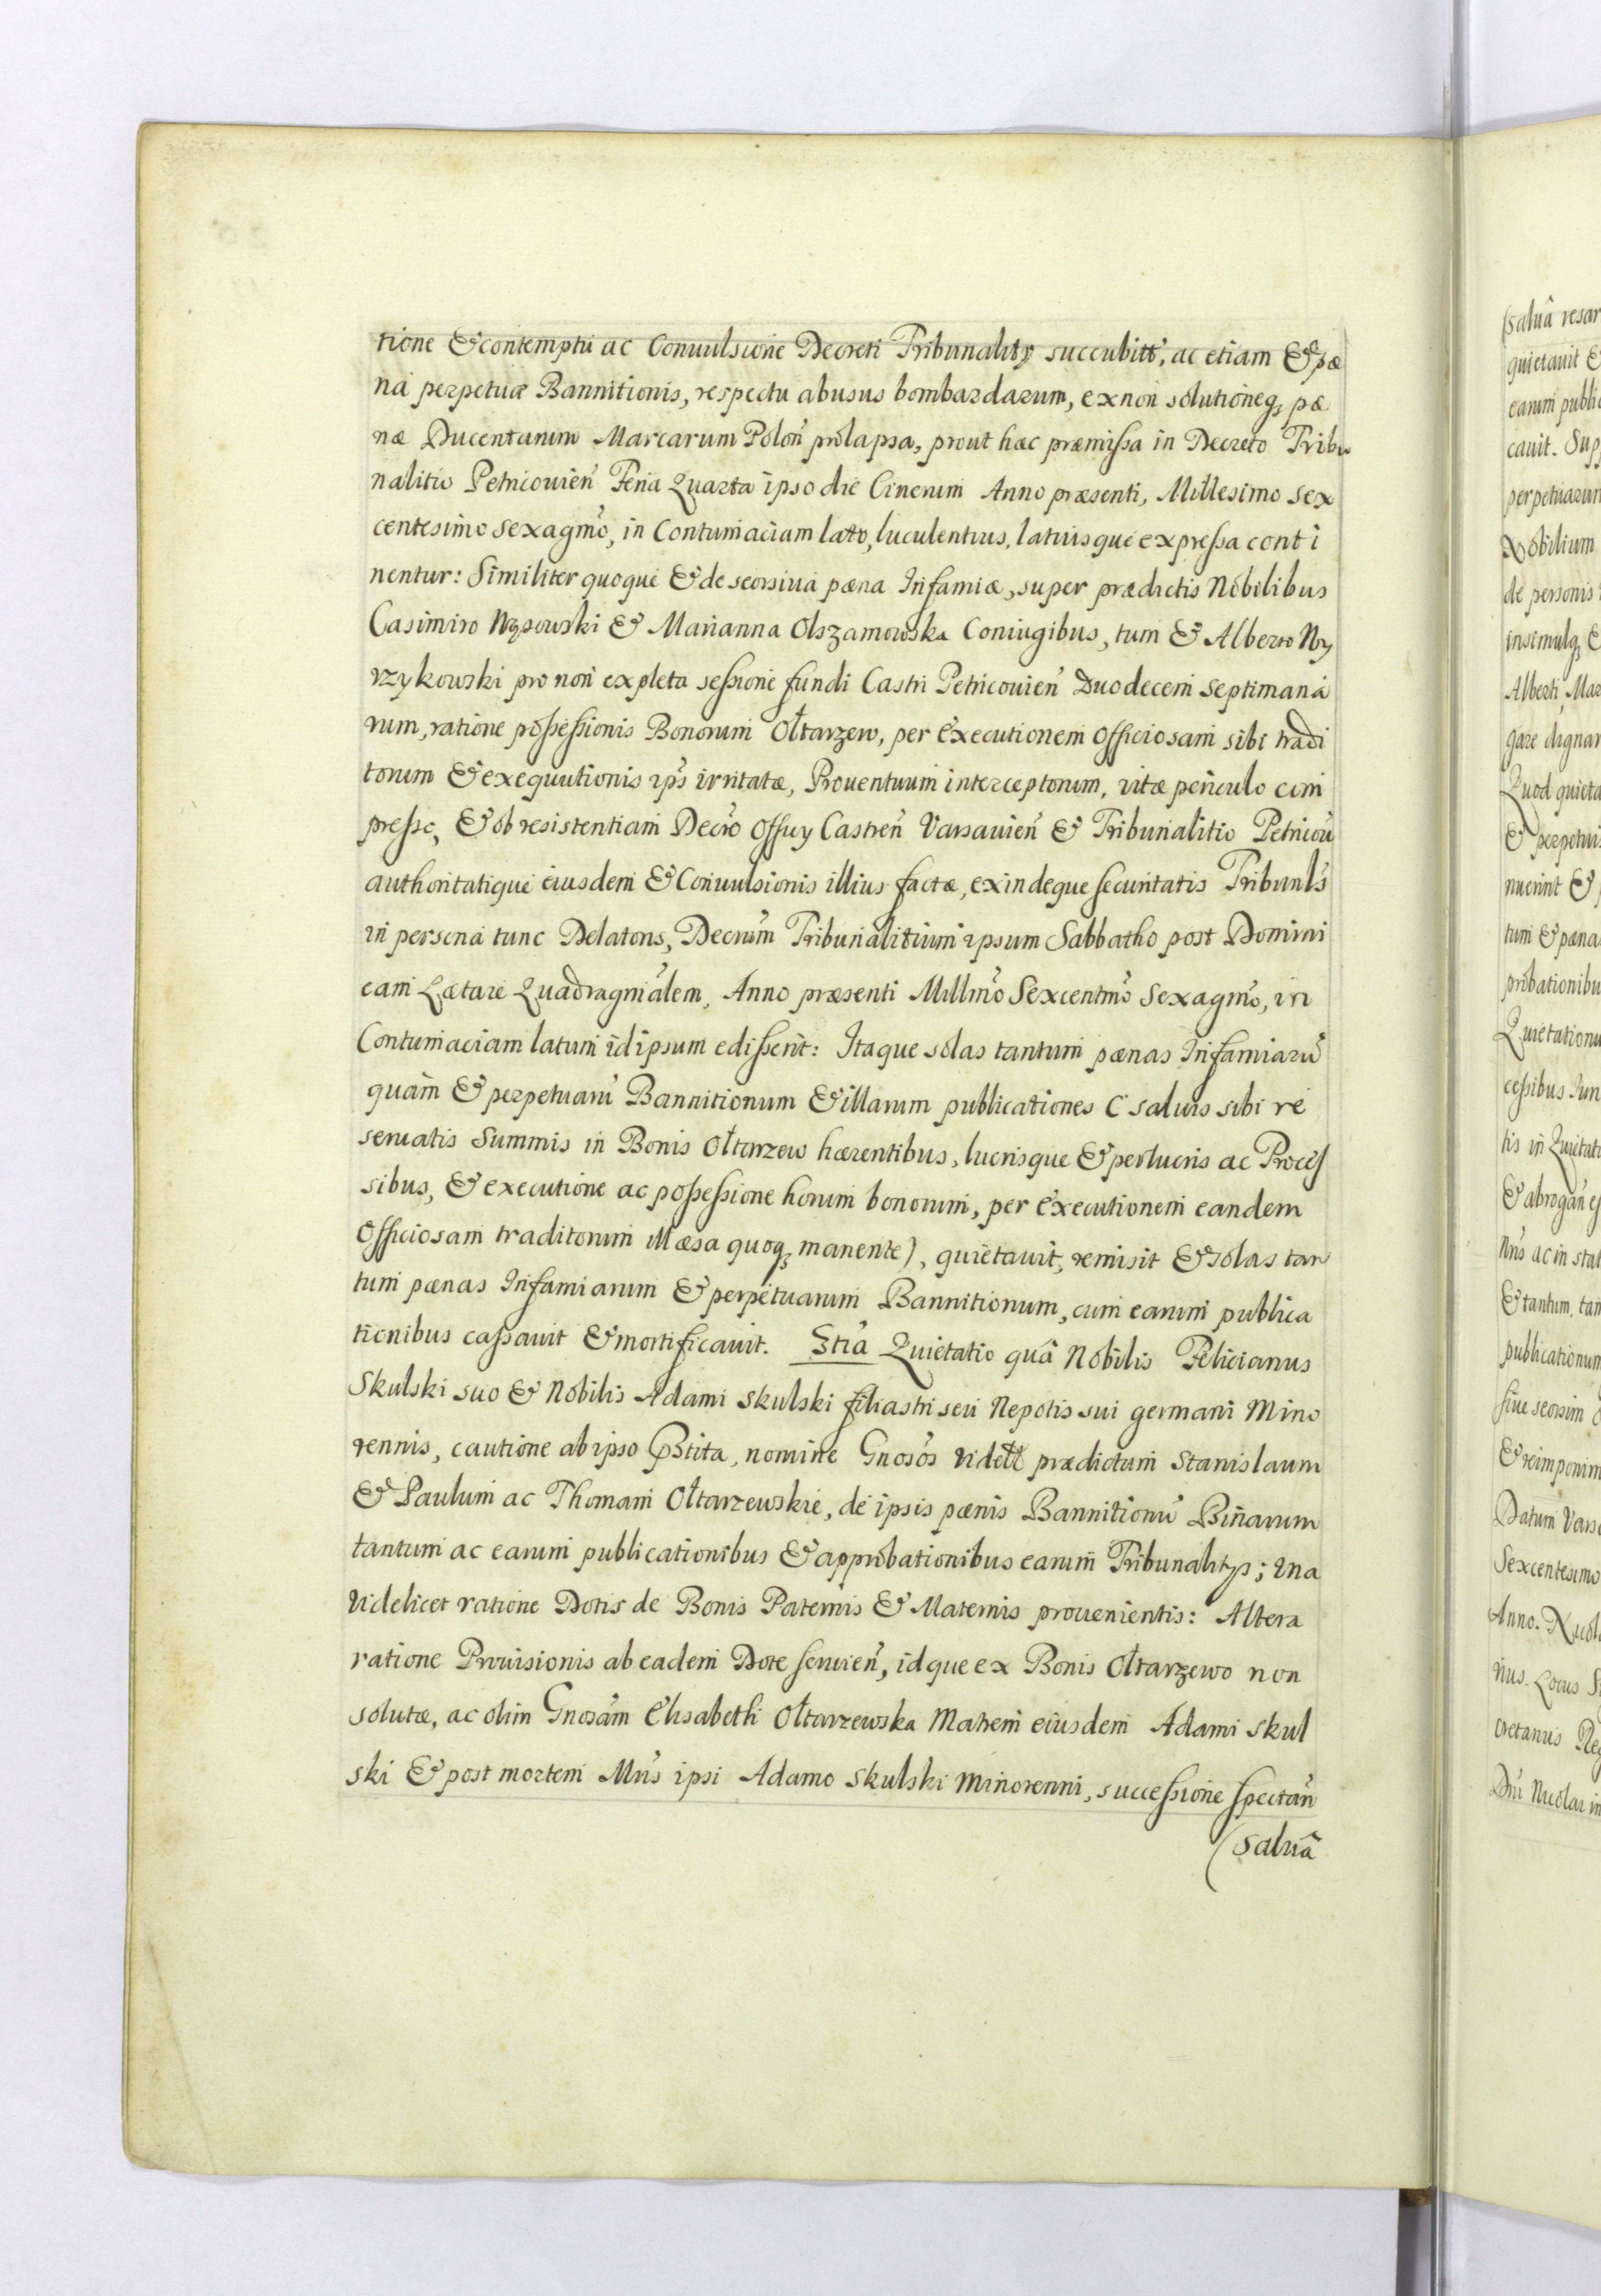 tione & contemptu ac Conuulsione Decreti Tribunality succubitt, ac etiam & pæ
na perpetuæ Bannitionis, respectu abusus bombardarum, ex non solutioneq; pæ
næ Ducentarum Marcarum Polon̄ prolapsa, prout hæc præmissa in Decreto Tribu
nalitio Petricouien̄ Feria Quarta ipso die Cinerum Anno præsenti, Millesimo Sex
centesimo sexagm̄o, in Contumaciam lato, luculentius, latiusque expressa conti
nentur: Similiter quoque & de seorsiua pæna Infamiæ, super prædictis Nobilibus
Casimiro & Marianna Olszamowska Coniugibus, tum & Alberto Ny
rzykowski pro non expleta sessione fundi Castri Petricouien̄ Duodecem Septimana
rum, ratione possessionis Bonorum Ołtarzew, per Executionem Officiosam sibi tradi
torum & exequutionis ip̄s irritatæ, Prouentuum interceptorum, vitæ periculo com
presso, & ob resistentiam Decr̄o Officy Castren̄ Varsauien̄ & Tribunalitio Petricou̅
authoritatique eiusdem & Conuulsionis illius factæ, exindeque securitatis Tribunl̄s
in persona tunc Delatoris, Decrūm Tribunalitium ipsum Sabbatho post Domini
cam Lætare Quadragm̄alem, Anno præsenti Millm̄o Sexcentm̄o Sexagm̄o, in
Contumaciam latum idipsum edisserit: Itaque solas tantum pænas Infamiarū
quam & perpetuarū Bannitionum & illarum publicationes (saluis sibi re
seruatis Summis in Bonis Ołtarzew hærentibus, lucrisque & perlucris ac Proces
sibus, & executione ac possessione horum bonorum, per Executionem eandem
Officiosam traditorum illæsa quoq; manente), quietauit, remisit & solas tan
tum pænas Infamiarum & perpetuarum Bannitionum, cum earum publica
tionibus cassauit & mortificauit. 3tia Quietatio quâ Nobilis Felicianus
Skulski suo & Nobilis Adami Skulski filiastri seu Nepotis sui germani Mino
rennis, cautione ab ipso p̄stita, nomine Gnosōs videtł prædictum Stanislaum
& Paulum ac Thomam Ołtarzewskie, de ipsis pænis Bannitionū Binarum
tantum ac earum publicationibus & approbationibus earum Tribunalitys; Vna
videlicet ratione Dotis de Bonis Paternis & Maternis prouenientis: Altera
ratione Prouisionis ab eadem Dote seruien̄, idque ex Bonis Ołtarzewo non
solutæ, ac olim Gnosām Elisabethi Ołtarzewska Matrem eiusdem Adami Skul
ski & post mortem Mrīs ipsi Adamo Skulski Minorenni, successione spectan̄
(saluâ
(saluâ resar
quietauit &
earum public
cauit. Sup
perpetuarum
Nobilium
de personis
insimulq; &
Alberti, Mar
gare dignar
Quod quieta
& perpetui
nuerint &
tum & pæna
probationibu
Quietationu
cessibus Iun
tis in Quietati
& abrogan̄
ac in stat
& tantum, tam
publicationum
siue seorsim
& reimponim
Datum Vars
Sexcentesimo
Anno. Nicol
rius. Locus S
cretarius Reg
Dn̄i Nicolai in